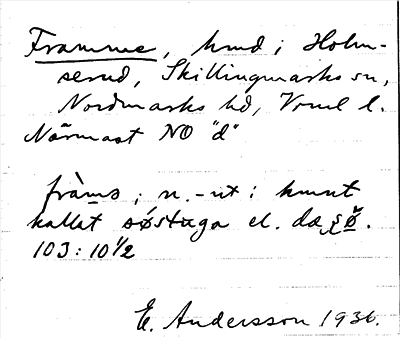 Framme, hmd i Holm-
serud, Skillingmarks sn,
Nordmarks hd, Vrml l.
Närmast NO "d"
fràms, n. -ut: hmnt
kallat søstuga el. da
103: 10 1/2
E. Andersson 1936.